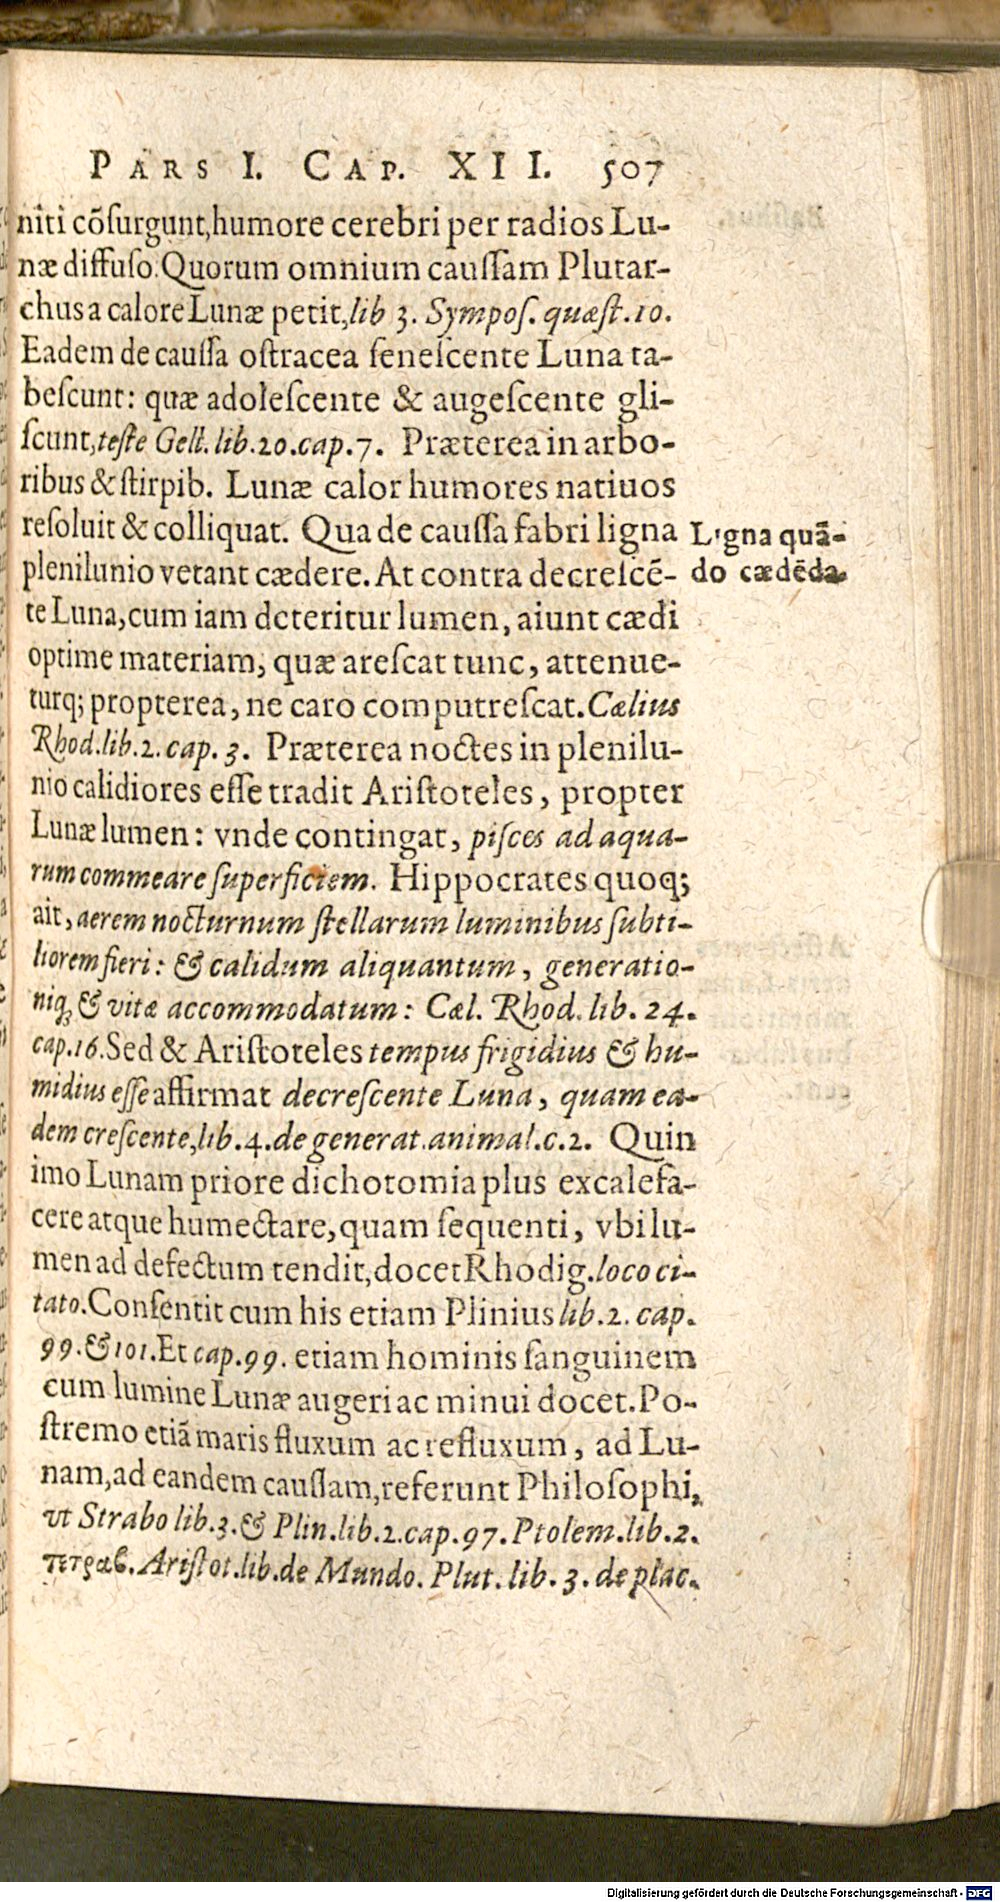 PARS I. CAP. XII. 507
niti cõſurgunt, humore cerebri per radios Lu-
næ diffuſo. Quorum omnium cauſſam Plutar-
chus a calore Lunæ petit, lib 3. Sympoſ. quæſt. 10.
Eadem de cauſſa oſtracea ſeneſcente Luna ta-
beſcunt: quæ adoleſcente & augeſcente gli-
ſcunt, teſte Gell. lib. 20. cap. 7. Præterea in arbo-
ribus & ſtirpib. Lunæ calor humores natiuos
reſoluit & colliquat. Qua de cauſſa fabri ligna
plenilunio vetant cædere. At contra decreſcẽ-
te Luna, cum iam deteritur lumen, aiunt cædi
optime materiam, quæ areſcat tunc, attenue-
turq; propterea, ne caro computreſcat. Cælius
Rhod. lib. 2. cap. 3. Præterea noctes in plenilu-
nio calidiores eſſe tradit Ariſtoteles, propter
Lunæ lumen: vnde contingat, piſces ad aqua-
rum commeare ſuperficiem. Hippocrates quoq;
ait, aerem nocturnum ſtellarum luminibus ſubti-
liorem fieri: & calidum aliquantum, generatio-
niq; & vitæ accommodatum: Cæl. Rhod. lib. 24.
cap. 16. Sed & Ariſtoteles tempus frigidius & hu-
midius eſſe affirmat decreſcente Luna, quam ea-
dem creſcente, lib. 4. de generat. animal. c. 2. Quin
imo Lunam priore dichotomia plus excalefa-
cere atque humectare, quam ſequenti, vbi lu-
men ad defectum tendit, docet Rhodig. loco ci-
tato. Conſentit cum his etiam Plinius lib. 2. cap.
99. & 101. Et cap. 99. etiam hominis ſanguinem
cum lumine Lunæ augeri ac minui docet. Po-
ſtremo etiã maris fluxum ac refluxum, ad Lu-
nam, ad eandem cauſſam, referunt Philoſophi,
vt Strabo lib. 3. & Plin. lib. 2. cap. 97. Ptolem. lib. 2.
τετραβ. Ariſtot. lib. de Mundo. Plut. lib. 3. de plac.
Ligna quã-
do cædẽda.
Digitalisierung gefördert durch die Deutsche Forschungsgemeinschaft - DFG